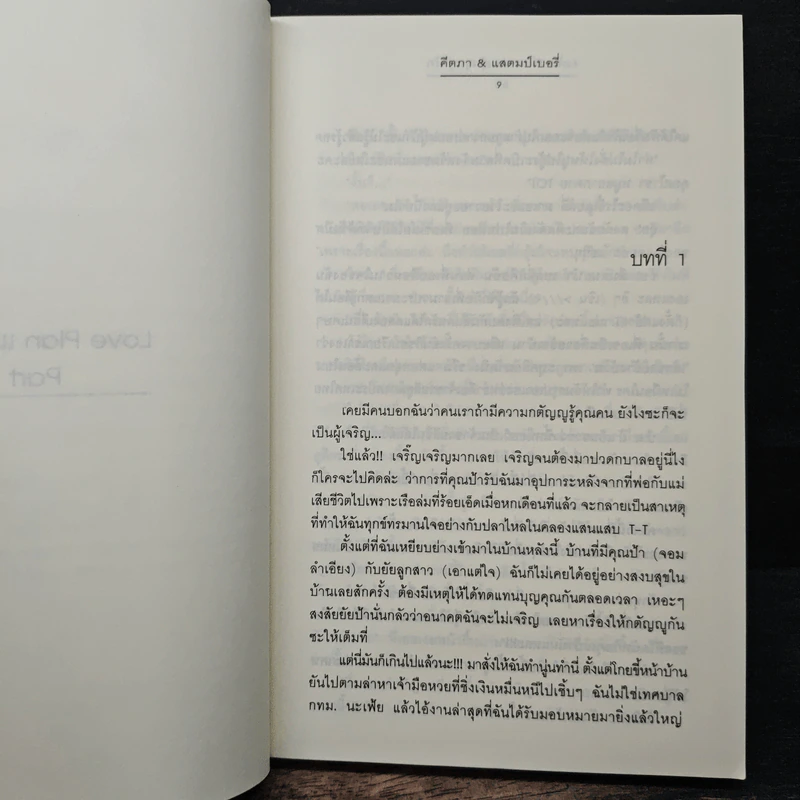 คีตภา & แสตมป์เบอรี่
9
บทที่ 1
เคยมีคนบอกฉันว่าคนเราถ้ามีความกตัญญูรู้คุณคน ยังไงซะก็จะ
เป็นผู้เจริญ...
ใช่แล้ว!! เจริ๊ญเจริญมากเลย เจริญจนต้องมาปวดกบาลอยู่นี่ไง
ก็ใครจะไปคิดล่ะ ว่าการที่คุณป้ารับฉันมาอุปการะหลังจากที่พ่อกับแม่
เสียชีวิตไปเพราะเรือล่มที่ร้อยเอ็ดเมื่อหกเดือนที่แล้ว จะกลายเป็นสาเหตุ
ที่ทำให้ฉันทุกข์ทรมานใจอย่างกับปลาไหลในคลองแสนแสบ T-T
ตั้งแต่ที่ฉันเหยียบย่างเข้ามาในบ้านหลังนี้ บ้านที่มีคุณป้า (จอม
ลำเอียง) กับยัยลูกสาว (เอาแต่ใจ) ฉันก็ไม่เคยได้อยู่อย่างสงบสุขใน
บ้านเลยสักครั้ง ต้องมีเหตุให้ได้ทดแทนบุญคุณกันตลอดเวลา เหอะๆ
สงสัยยัยป้านั่นกลัวว่าอนาคตฉันจะไม่เจริญ เลยหาเรื่องให้กตัญญูกัน
ซะให้เต็มที่
แต่นี่มันก็เกินไปแล้วนะ!!! มาสั่งให้ฉันทำนู่นทำนี่ ตั้งแต่โกยขี้หน้าบ้าน
ยันไปตามล่าหาเจ้ามือหวยที่ชิ่งเงินหมื่นหนีไปเชิ้บๆ ฉันไม่ใช่เทศบาล
กทม. นะเฟ้ย แล้วไอ้งานล่าสุดที่ฉันได้รับมอบหมายมายิ่งแล้วใหญ่